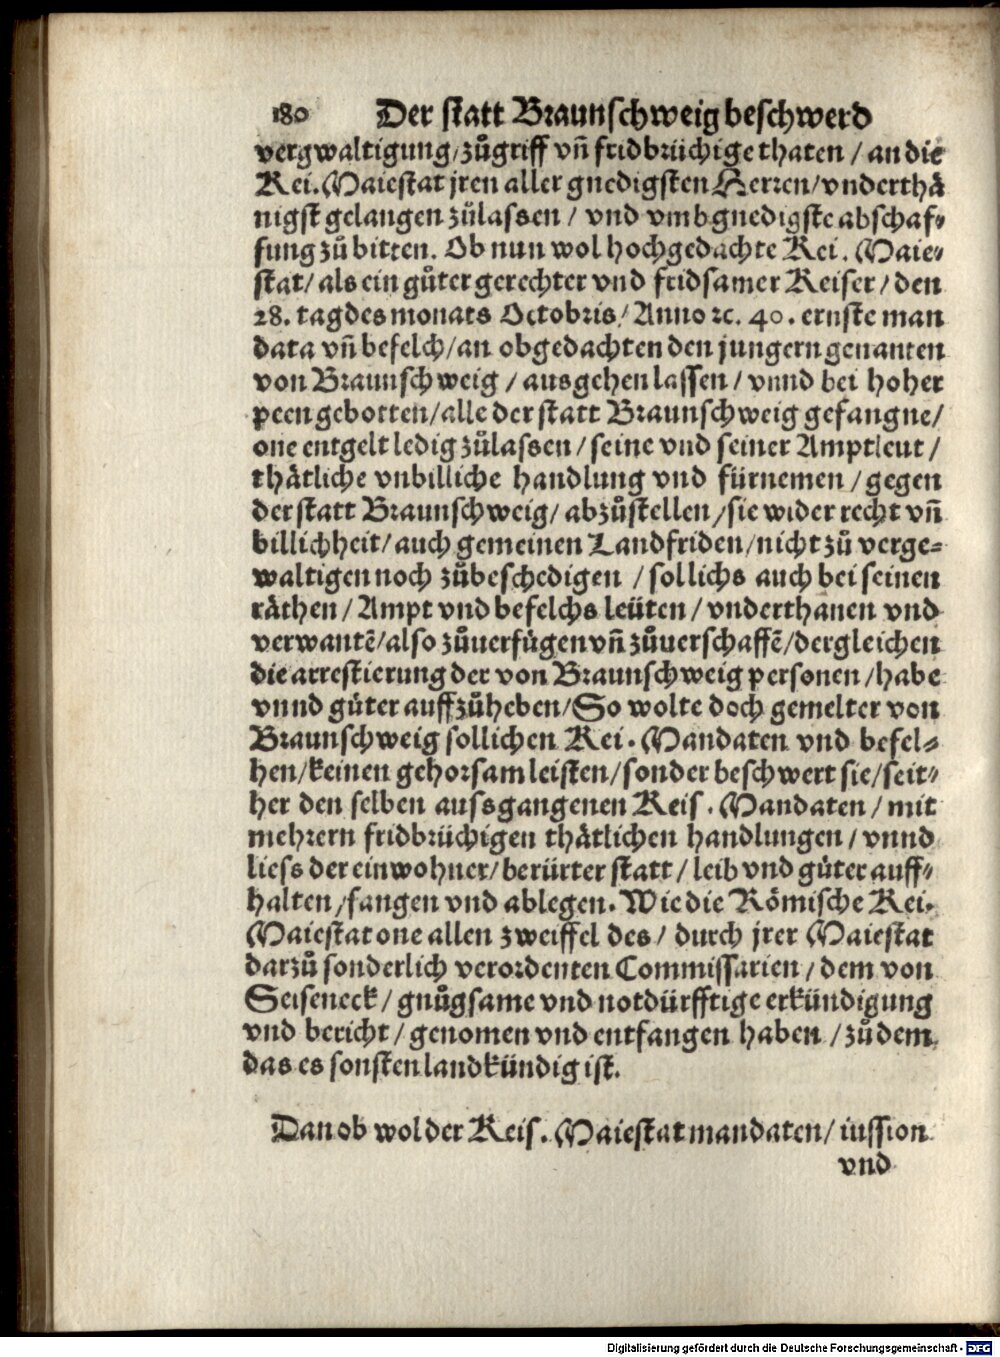 180 Der statt Braunschweig beschwerd
vergwaltigung/zůgriff vñ fridbrüchige thaten / an die
Kei. Maiestat jren aller gnedigsten Herren/vnderthä
nigst gelangen zůlassen / vnd vmb gnedigste abschaf-
fung zů bitten. Ob nun wol hochgedachte Kei. Maie-
stat/ als ein gůter gerechter vnd fridsamer Keiser/ den
28. tag des monats Octobris/ Anno ꝛc. 40. ernste man
data vñ befelch/an obgedachten den jungern genanten
von Braunschweig / ausgehen lassen / vnnd bei hoher
peen gebotten/alle der statt Braunschweig gefangne/
one entgelt ledig zůlassen / seine vnd seiner Amptleut /
thätliche vnbilliche handlung vnd fürnemen / gegen
der statt Braunschweig/ abzůstellen /sie wider recht vñ
billichheit/ auch gemeinen Landfriden/nicht zů verge-
waltigen noch zůbeschedigen / sollichs auch bei seinen
räthen / Ampt vnd befelchs leüten / vnderthanen vnd
verwantẽ/also zůuerfügen vñ zůuerschaffẽ/dergleichen
die arrestierung der von Braunschweig personen /habe
vnnd güter auffzůheben/So wolte doch gemelter von
Braunschweig sollichen Kei. Mandaten vnd befel-
hen/keinen gehorsam leisten/sonder beschwert sie/seit-
her den selben aussgangenen Keis. Mandaten / mit
mehrern fridbrüchigen thätlichen handlungen / vnnd
liess der einwohner/ berürter statt / leib vnd güter auff-
halten /fangen vnd ablegen. Wie die Römische Kei.
Maiestat one allen zweiffel des/ durch jrer Maiestat
darzů sonderlich verordenten Commissarien / dem von
Seiseneck / gnůgsame vnd notdürfftige erkündigung
vnd bericht / genomen vnd entfangen haben / zů dem
das es sonsten landkündig ist.
Dan ob wol der Keis. Maiestat mandaten/ iussion
vnd
Digitalisierung gefördert durch die Deutsche Forschungsgemeinschaft - DFG